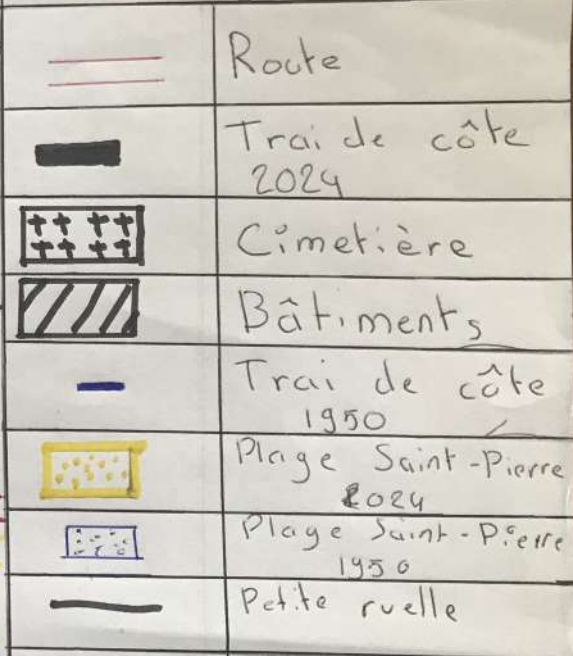 Route
Trai de côte
2024
Cimetière
Bâtiments
Trai de côte
1950
Plage Saint-Pierre
2024
Plage Saint-Pierre
1950
Petite ruelle